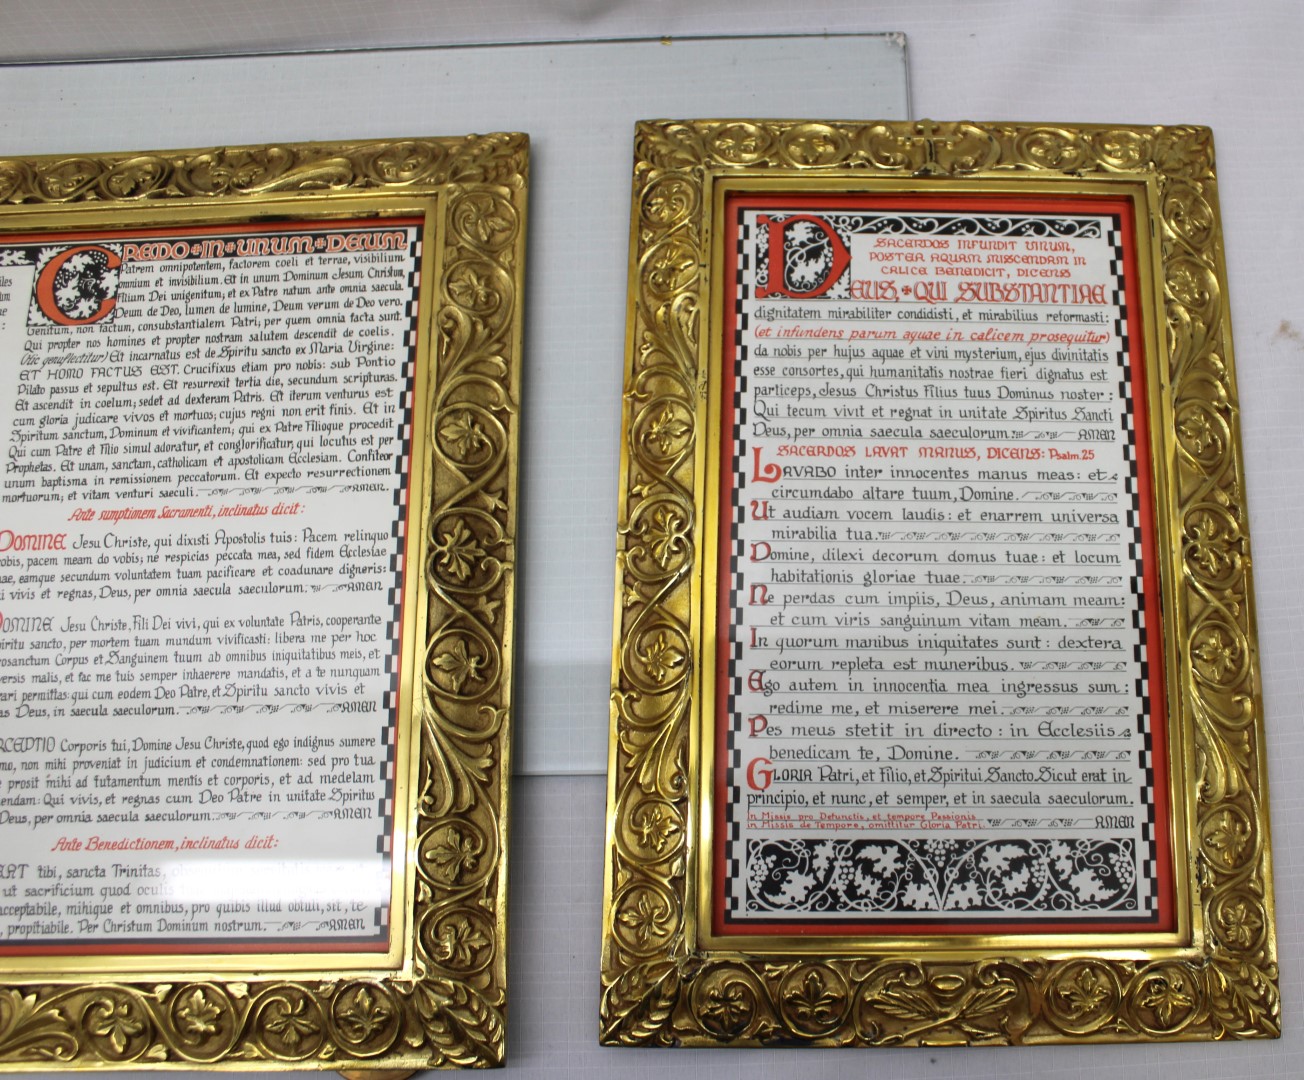 CREDO IN UNUM DEUM
Patrem omnipotentem, factorem coeli et terrae, visibilium
omnium et invisibilium. Et in unum Dominum Jesum Christum,
Filium Dei unigenitum; et ex Patre natum ante omnia saecula.
Deum de Deo, lumen de lumine, Deum verum de Deo vero.
Genitum, non factum, consubstantialem Patri, per quem omnia facta sunt.
Qui propter nos homines et propter nostram salutem descendit de coelis.
(Hic genuflectitur) Et incarnatus est de Spiritu sancto ex Maria Virgine:
ET HOMO FACTUS EST. Crucifixus etiam pro nobis: sub Pontio
Pilato passus et sepultus est. Et resurrexit tertia die, secundum scripturas.
Et ascendit in coelum; sedet ad dexteram Patris. Et iterum venturus est
cum gloria judicare vivos et mortuos; cujus regni non erit finis. Et in
Spiritum sanctum, Dominum et vivificantem; qui ex Patre Filioque procedit
Qui cum Patre et Filio simul adoratur, et conglorificatur; qui locutus est per
Prophetas. Et unam, sanctam, catholicam et apostolicam Ecclesiam. Confiteor
unum baptisma in remissionem peccatorum. Et expecto resurrectionem
mortuorum; et vitam venturi saeculi. AMEN.
Ante sumptionem Sacramenti, inclinatus dicit:
DOMINE Jesu Christe, qui dixisti Apostolis tuis: Pacem relinquo
vobis, pacem meam do vobis; ne respicias peccata mea, sed fidem Ecclesiae
uae, eamque secundum voluntatem tuam pacificare et coadunare digneris:
i vivis et regnas, Deus, per omnia saecula saeculorum. AMEN
DOMINE Jesu Christe, Fili Dei vivi, qui ex voluntate Patris, cooperante
piritu sancto, per mortem tuam mundum vivificasti: libera me per hoc
rosanctum Corpus et Sanguinem tuum ab omnibus iniquitatibus meis, et
versis malis, et fac me tuis semper inhaerere mandatis, et a te nunquam
rari permittas: qui cum eodem Deo Patre, et Spiritu sancto vivis et
as Deus, in saecula saeculorum. AMEN
RCEPTIO Corporis tui, Domine Jesu Christe, quod ego indignus sumere
mo, non mihi proveniat in judicium et condemnationem: sed pro tua
prosit mihi ad tutamentum mentis et corporis, et ad medelam
endam: Qui vivis, et regnas cum Deo Patre in unitate Spiritus
Deus, per omnia saecula saeculorum. AMEN
Ante Benedictionem, inclinatus dicit:
EAT tibi, sancta Trinitas,
ut sacrificium quod oculis
acceptabile, mihique et omnibus, pro quibus illud obtuli, sit, te
, propitiabile. Per Christum Dominum nostrum. AMEN
SACERDOS INFUNDIT VINUM,
POSTEA AQUAM MISCENDAM IN
CALICE BENEDICIT, DICENS
DEUS, QUI SUBSTANTIAE
dignitatem mirabiliter condidisti, et mirabilius reformasti:
(et infundens parum aquae in calicem prosequitur)
da nobis per hujus aquae et vini mysterium, ejus divinitatis
esse consortes, qui humanitatis nostrae fieri dignatus est
particeps, Jesus Christus Filius tuus Dominus noster:
Qui tecum vivit et regnat in unitate Spiritus Sancti
Deus, per omnia saecula saeculorum. AMEN
SACERDOS LAVAT MANUS, DICENS: Psalm. 25
LAVABO inter innocentes manus meas: et
circumdabo altare tuum, Domine.
Ut audiam vocem laudis: et enarrem universa
mirabilia tua.
Domine, dilexi decorum domus tuae: et locum
habitationis gloriae tuae.
Ne perdas cum impiis, Deus, animam meam:
et cum viris sanguinum vitam meam.
In quorum manibus iniquitates sunt: dextera
eorum repleta est muneribus.
Ego autem in innocentia mea ingressus sum:
redime me, et miserere mei.
Pes meus stetit in directo: in Ecclesiis
benedicam te, Domine.
GLORIA Patri, et Filio, et Spiritui Sancto. Sicut erat in
principio, et nunc, et semper, et in saecula saeculorum.
In Missis pro Defunctis, et tempore Passionis
in Missis de Tempore, omittitur Gloria Patri. AMEN